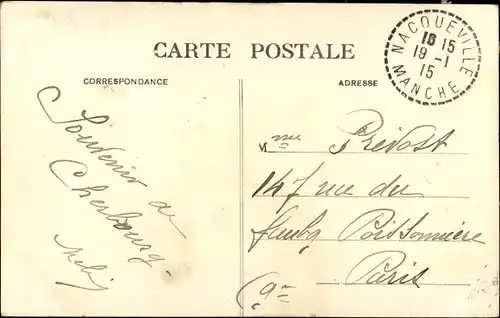 CARTE POSTALE
CORRESPONDANCE
ADRESSE
NACQUEVILLE
MANCHE
16 15
19-1
15
Souvenir de
Cherbourg.
Mme Prévost
147 rue du
faubg Poissonnière
Paris
(9e